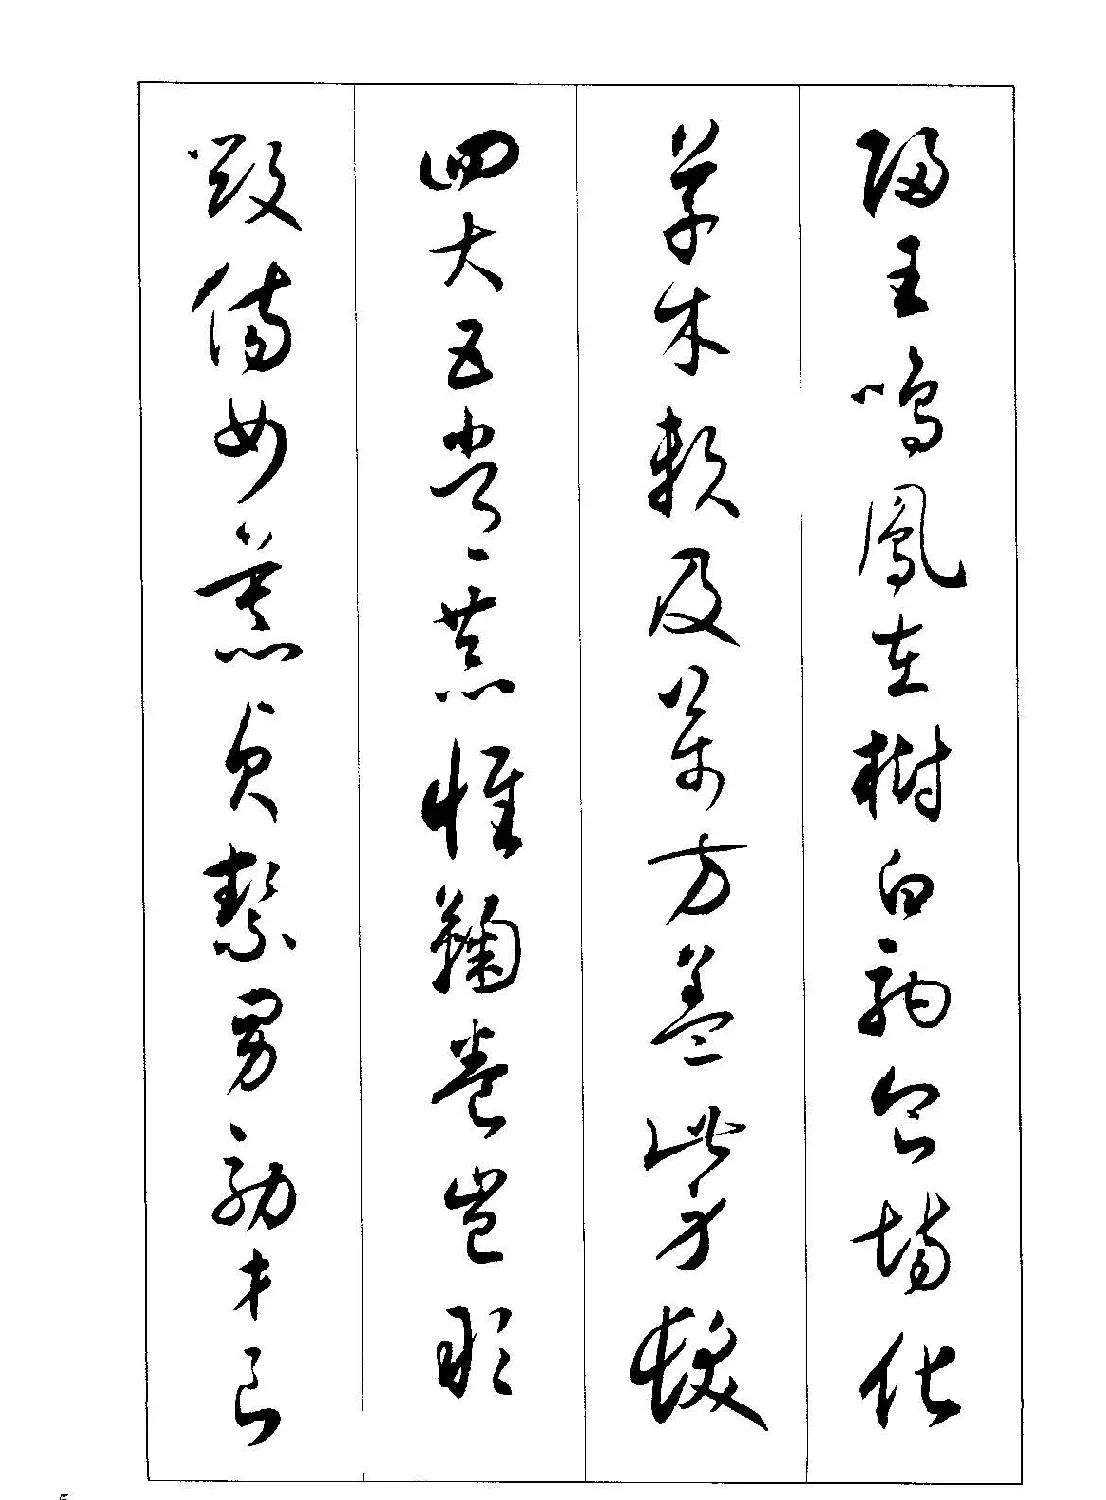 歸王鳴鳳在樹白駒食場化
草木賴及萬方蓋此身髮
四大五常恭惟鞠養豈敢
毀傷女慕貞絜男效才良